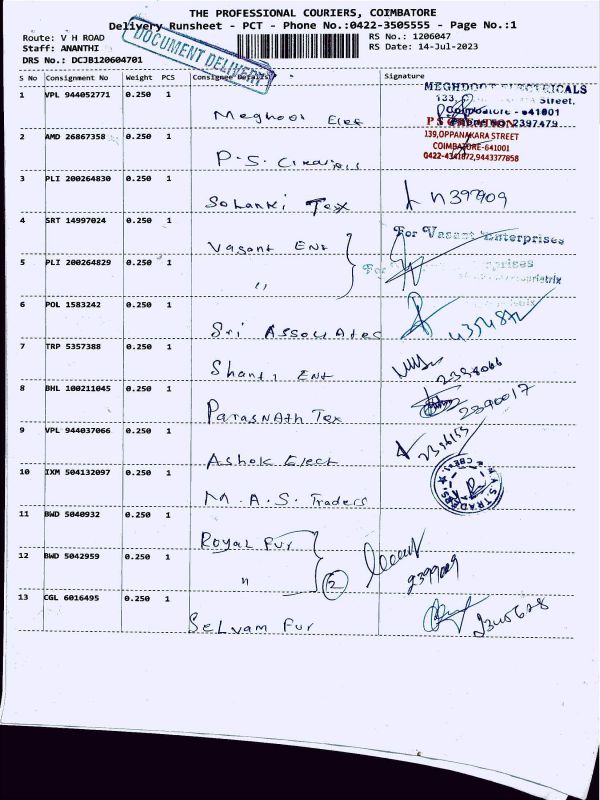 THE PROFESSIONAL COURIERS, COIMBATORE
Delivery Runsheet - PCT - Phone No.:0422-3505555 - Page No.:1
Route: V H ROAD RS No.: 1206047
Staff: ANANTHI RS Date: 14-Jul-2023
DRS No.: DCJB120604701
DOCUMENT DELIVERY
S No Consignment No Weight PCS Consignee Details Signature
1 VPL 944052771 0.250 1 Meghdoot Elec
MEGHDOOT ELECTRICALS
133, Street,
Coimbatore - 641001
2397479
2 AMD 26867358 0.250 1 P.S. Creations
P S CREATION
139,OPPANAKARA STREET
COIMBATORE-641001
0422-4341872,9443377858
3 PLI 200264830 0.250 1 Solanki Tex
4 SRT 14997024 0.250 1 Vasant Ent
For Vasant Enterprises
5 PLI 200264829 0.250 1 "
For
6 POL 1583242 0.250 1 Sri Associates
7 TRP 5357388 0.250 1 Shanti Ent 2398066
8 BHL 100211045 0.250 1 Parasnath Tex 2390017
9 VPL 944037066 0.250 1 Ashok Elect
10 IXM 504132097 0.250 1 M.A.S. Traders
M.A.S. TRADERS
11 BWD 5040932 0.250 1 Royal Fur
12 BWD 5042959 0.250 1 " 2
13 CGL 6016495 0.250 1 Selvam Fur